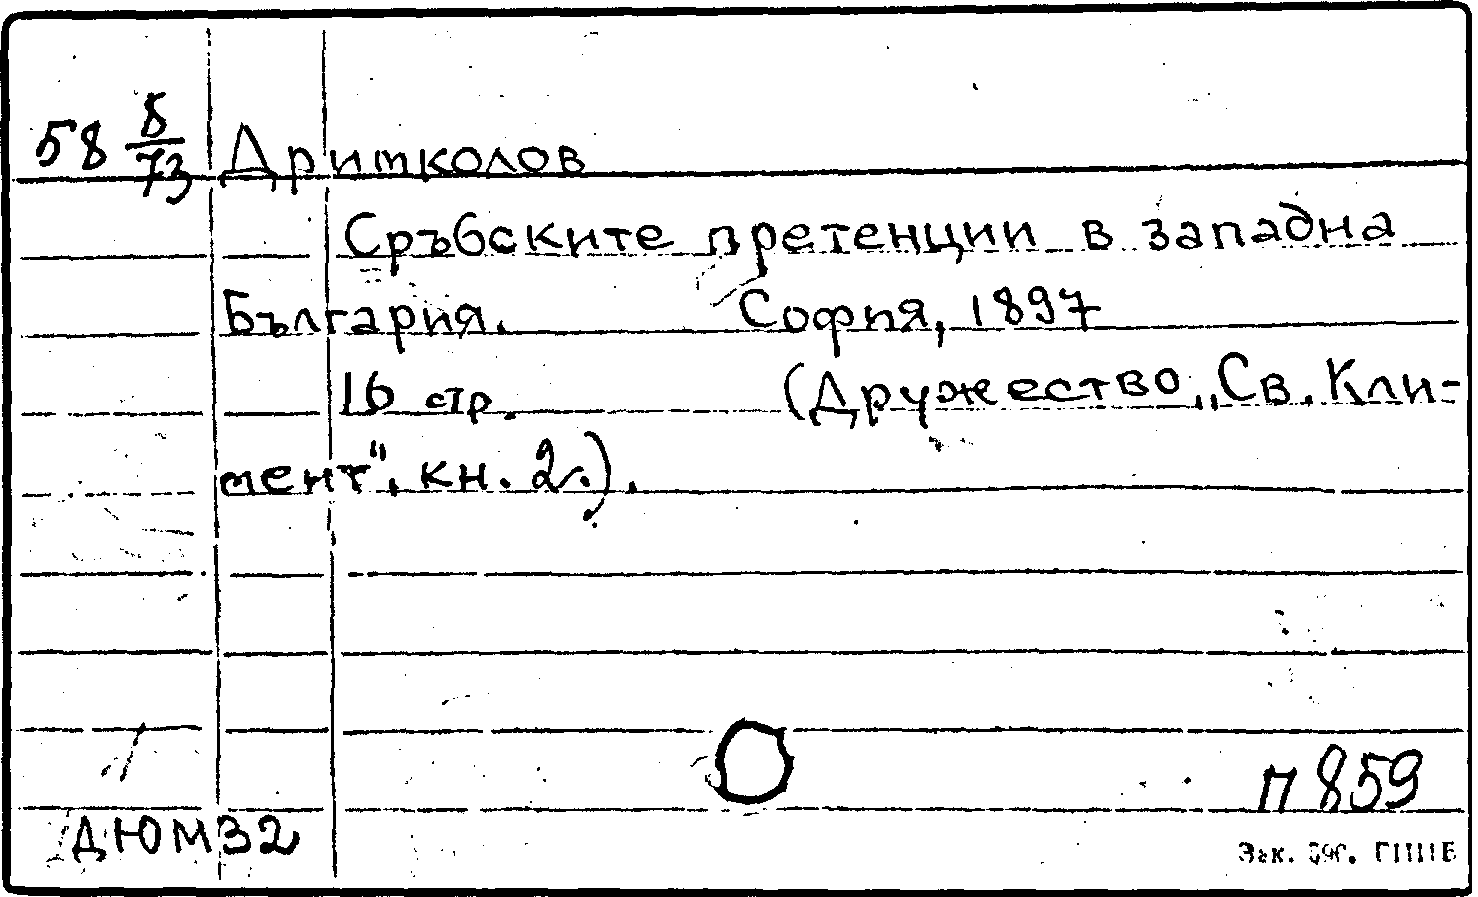 58 8/73 Дритколов
Сръбските претенции в западна
България. София, 1897
16 стр. (Дружество „Св. Кли-
мент", кн. 2.).
П 859
ДЮМ32
Зак.